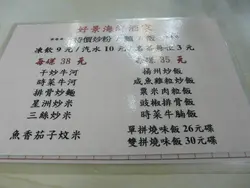 好景海鮮酒家
特價炒粉 麵 飯
凍飲9元/汽水10元/
每碟38元
每碟35元
干炒牛河
時菜牛河
排骨炒麵
星洲炒米
三絲炒米
魚香茄子炆米
揚州炒飯
咸魚雞粒炒飯
粟米肉粒飯
豉椒排骨飯
時菜牛腩飯
單拼燒味飯26元碟
雙拼燒味飯30元碟